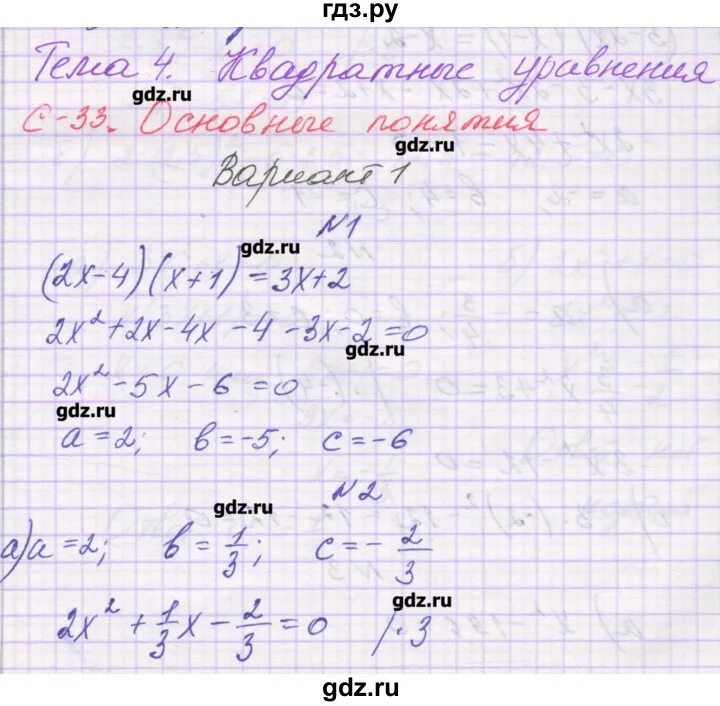 гдз.ру
Тема 4. Квадратные уравнения
gdz.ru
С-33. Основные понятия
gdz.ru
Вариант 1
№1
gdz.ru
(2x-4)(x+1)=3x+2
2x²+2x-4x-4-3x-2=0
gdz.ru
2x²-5x-6=0
gdz.ru
a=2; b=-5; c=-6
№2
gdz.ru
а) a=2; b=1/3; c=-2/3
gdz.ru
2x²+1/3x-2/3=0 /·3
gdz.ru